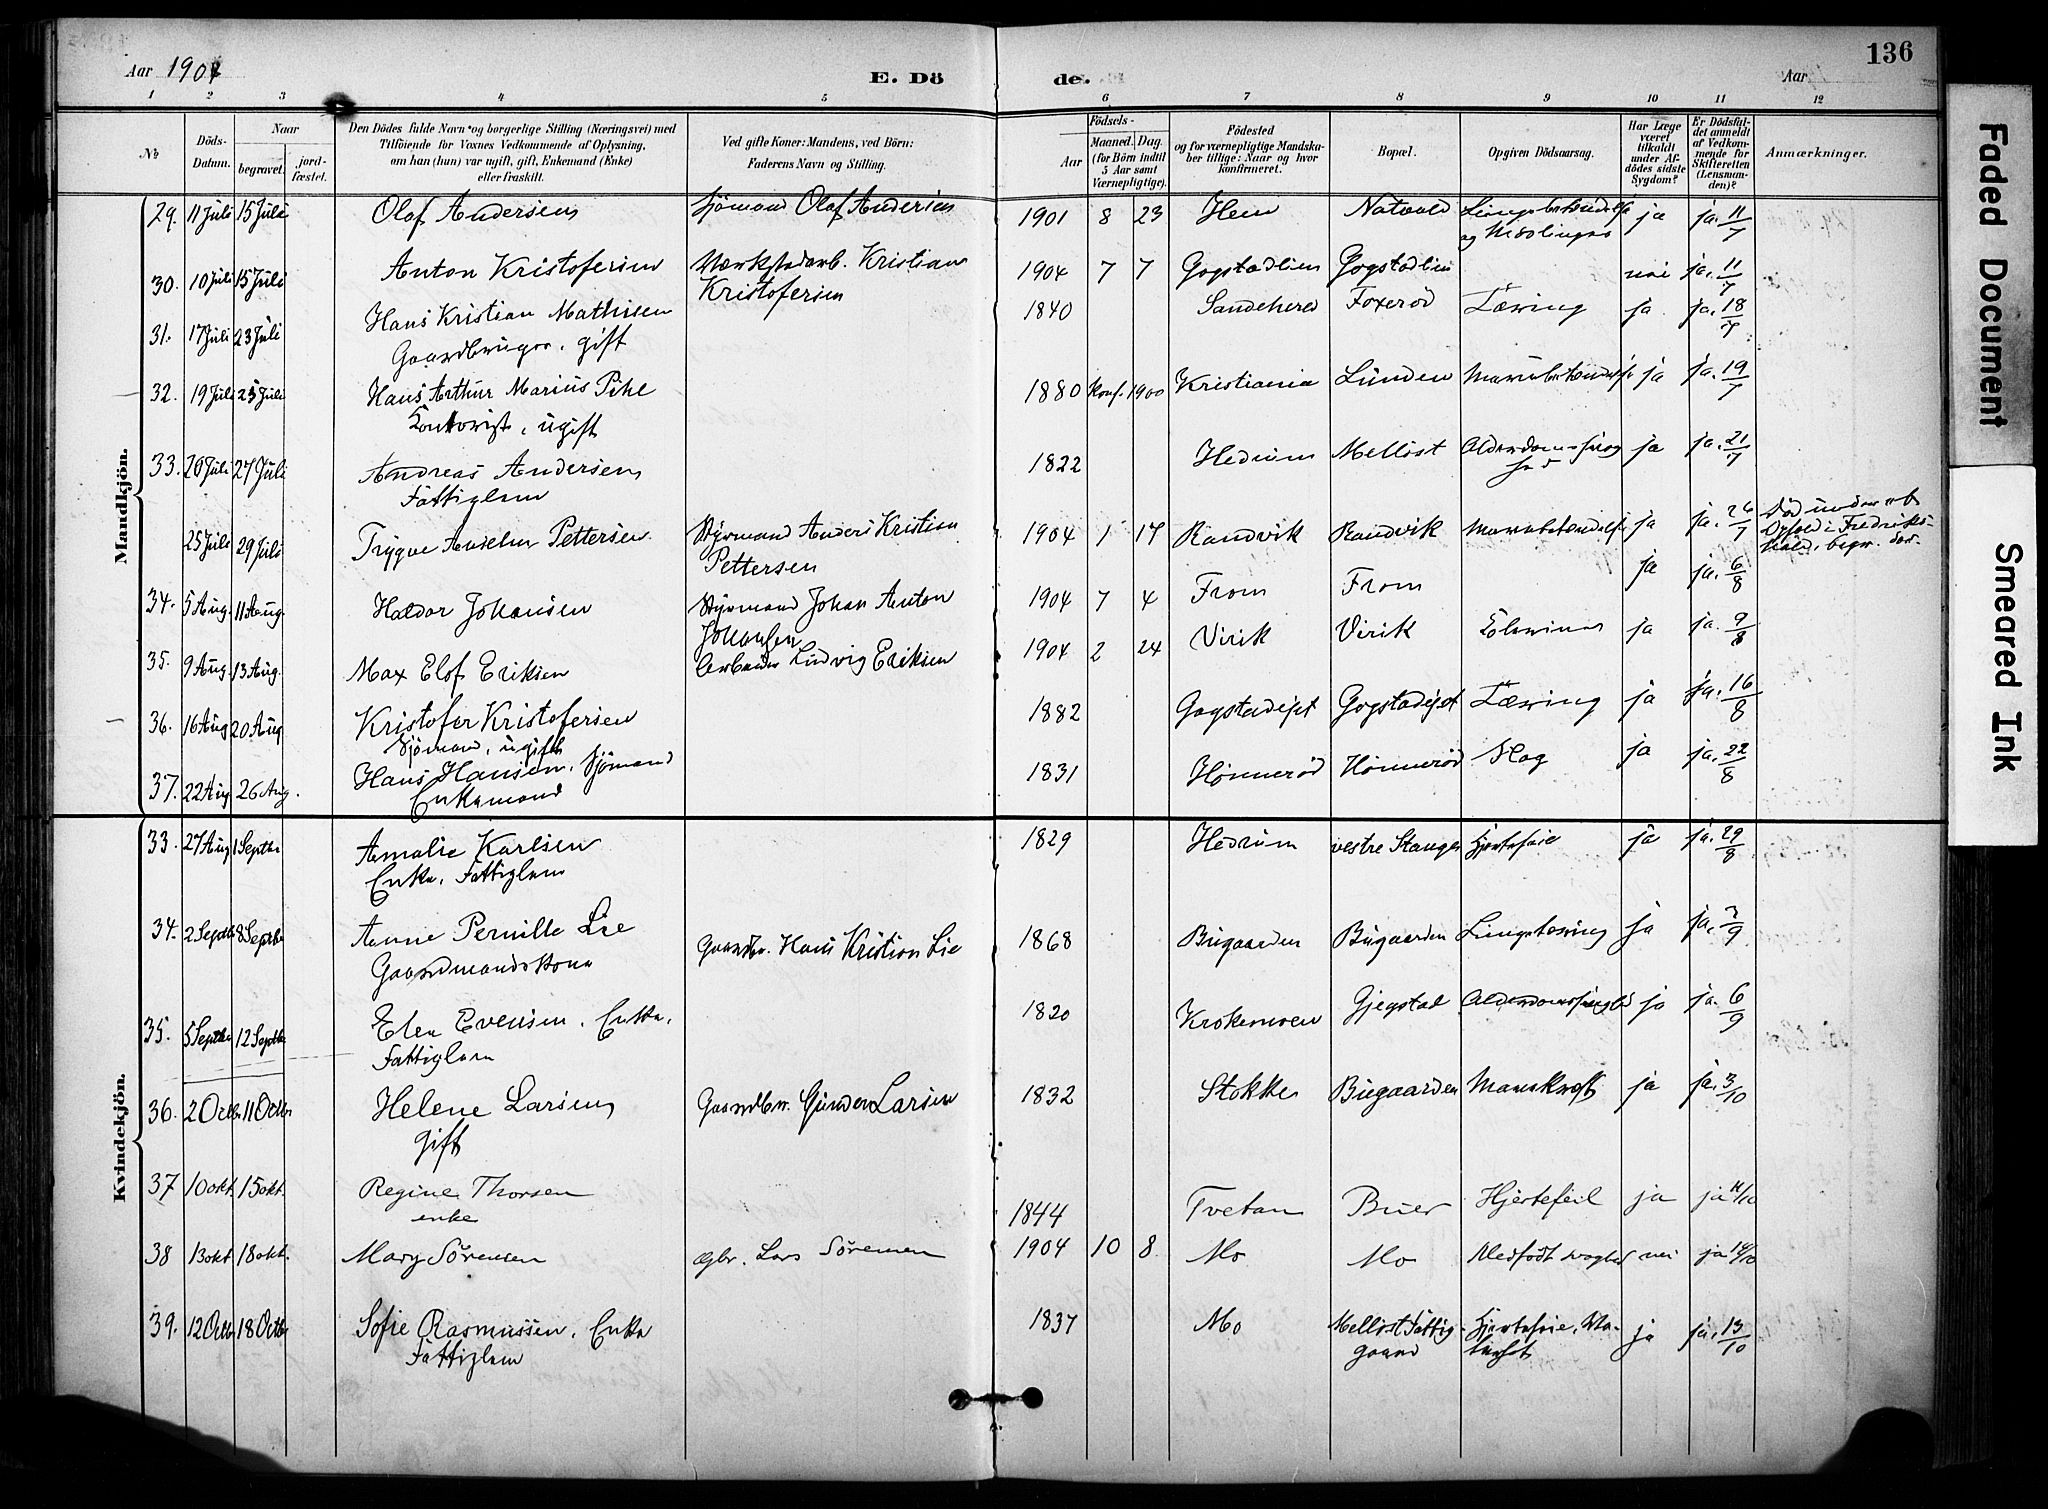 Aar 1904 E. Dö de. Aar 136
1 2 3 4 5 6 7 8 9 10 11 12
No Döds-Datum. Naar begravet. jord-fæstet.
Den Dödes fulde Navn og borgerlige Stilling (Næringsvei) med Tilföiende for Voxnes Vedkommende af Oplysning, om han (hun) var ugift, gift, Enkemand (Enke) eller fraskilt.
Ved gifte Koner: Mandens, ved Börn: Faderens Navn og Stilling.
Födsels- Aar Maaned. Dag. (for Börn indtil 5 Aar samt Værnepligtige).
Födested og for værnepligtige Mandskaber tillige: Naar og hvor konfirmeret.
Bopæl.
Opgiven Dödsaarsag.
Har Læge været tilkaldt under Afdödes sidste Sygdom?
Er Dödsfaldet anmeldt af Vedkommende for Skifteretten (Lensmanden)?
Anmærkninger.
Mandkjön.
29. 11 Juli 15 Juli Olaf Andersen Sjömand Olaf Andersen 1901 8 23 Hem ja ja. 11/7
og
30. 10 Juli 15 Juli Anton Kristofersen Værkstedarb. Kristian 1904 7 7 Gogstadlien Gogstadlien nei ja. 11/7
Kristofersen
31. 17 Juli 23 Juli Hans Kristian Mathisen 1840 Sandeherd Foxerød Tæring ja ja. 18/7
Gaardbruger, gift
32. 19 Juli 23 Juli Hans Arthur Marius Pihl 1880 Konf. 1900 Kristiania Lunden ja ja. 19/7
Kontorist, ugift
33. 20 Juli 27 Juli Andreas Andersen 1822 Hedrum Mellöst ja ja. 21/7
Fattiglem
25 Juli 29 Juli Trygve Anselm Pettersen Styrmand Anders Kristian 1904 1 17 Randvik Randvik ja ja. 26/7 Död under et
Pettersen Ophold i Fredriks-
hald, begr. der.
34. 5 Aug. 11 Aug. Haldor Johansen Styrmand Johan Anton 1904 7 4 From From ja ja. 6/8
Johansen
35. 9 Aug. 13 Aug. Max Elof Eriksen Arbeider Ludvig Eriksen 1904 2 24 Virik Virik ja ja. 9/8
36. 16 Aug 20 Aug Kristofer Kristofersen 1882 Gogstadejet Gogstadejet Tæring ja ja. 16/8
Sjömand, ugift
37. 22 Aug 26 Aug. Hans Hansen, Sjömand 1831 Hönneröd Hönneröd Slag ja ja. 22/8
Enkemand
Kvindekjön.
33. 27 Aug 1 Septbr Amalie Karlsen 1829 Hedrum vestre Stange Hjertefeil ja ja. 29/8
Enke, Fattiglem
34. 2 Septbr 8 Septbr Anne Pernille Lie Gaardbr. Hans Kristian Lie 1868 Bugaarden Bugaarden Lungetæring ja ja.
Gaardmandskone
35. 5 Septbr 12 Septbr Elen Evensen, Enke, 1820 Krokemoen Gjegstad ja ja. 6/9
Fattiglem
36. 2 Octbr 11 Octbr Helene Larsen Gaardbr. Gunder Larsen 1832 Stokke Bugaarden Mavekræft ja ja. 3/10
gift
37 10 okt. 15 okt. Regine Thorsen 1844 Tvetan Buer Hjertefeil ja ja 11/10
enke
38 13 okt 18 okt. Mary Sörensen gbr. Lars Sörensen 1904 10 8. Mo Mo Medfödt svaghed nei ja 14/10
39. 12 Octbr 18 Octbr Sofie Rasmussen, Enke 1837 Mo Mellöst Fattig-
Fattiglem gaard ja ja. 13/10
Faded Document
Smeared Ink